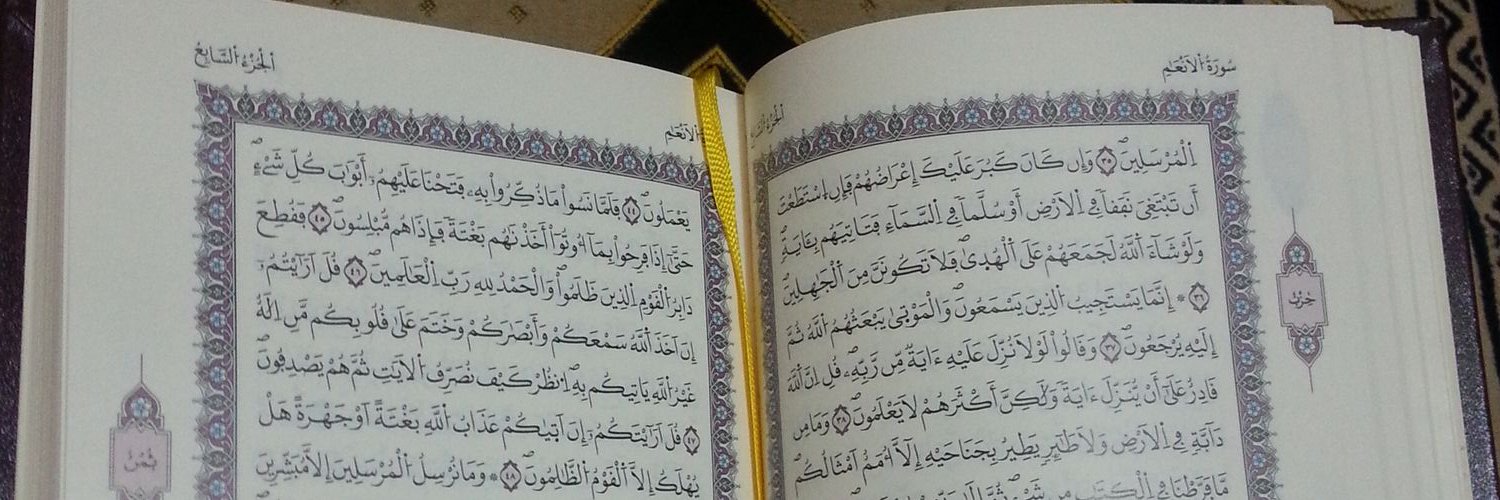 سُورَةُ الْأَنْعَٰمِ
الْجُزْءُ السَّابِعُ
اَلْمُرْسَلِينَ ٣٥ وَإِن كَانَ كَبُرَ عَلَيْكَ إِعْرَاضُهُمْ فَإِنِ اِسْتَطَعْتَ
أَن تَبْتَغِيَ نَفَقاً فِي اِلْأَرْضِ أَوْ سُلَّماً فِي اِلسَّمَآءِ فَتَاتِيَهُم بِـَٔايَةٍ
وَلَوْ شَآءَ اَللَّهُ لَجَمَعَهُمْ عَلَى اَلْهُدۭىٰ فَلَا تَكُونَنَّ مِنَ اَلْجَٰهِلِينَ
٣٦ ۞ إِنَّمَا يَسْتَجِيبُ اُلذِينَ يَسْمَعُونَ وَالْمَوْتۭىٰ يَبْعَثُهُمُ اُللَّهُ ثُمَّ
إِلَيْهِ يُرْجَعُونَ ٣٧ وَقَالُواْ لَوْلَا نُزِّلَ عَلَيْهِ ءَايَةٌ مِّن رَّبِّهِۦ قُلِ اِنَّ اَللَّهَ
قَادِرٌ عَلَىٰٓ أَنْ يُّنَزِّلَ ءَايَةً وَلَٰكِنَّ أَكْثَرَهُمْ لَا يَعْلَمُونَ ٣٨ وَمَا مِن
دَآبَّةٍ فِي اِلْأَرْضِ وَلَا طَٰٓئِرٍ يَطِيرُ بِجَنَاحَيْهِ إِلَّآ أُمَمٌ اَمْثَالُكُم
مَّا فَرَّطْنَا فِي اِلْكِتَٰبِ مِن شَيْءٍ ثُمَّ إِلَىٰ
حِزْبٌ
الْجُزْءُ السَّابِعُ
الْأَنْعَٰمِ
يَعْمَلُونَ ٤٤ فَلَمَّا نَسُواْ مَا ذُكِّرُواْ بِهِۦ فَتَحْنَا عَلَيْهِمُۥٓ أَبْوَٰبَ كُلِّ شَيْءٍ
حَتَّىٰٓ إِذَا فَرِحُواْ بِمَآ أُوتُوٓاْ أَخَذْنَٰهُم بَغْتَةً فَإِذَا هُم مُّبْلِسُونَ ٤٥ فَقُطِعَ
دَابِرُ اُلْقَوْمِ اِلذِينَ ظَلَمُواْ وَالْحَمْدُ لِلهِ رَبِّ اِلْعَٰلَمِينَ ٤٦ قُلَ اَرَٰٓيْتُمُۥٓ
إِنَ اَخَذَ اَللَّهُ سَمْعَكُمْ وَأَبْصَٰرَكُمْ وَخَتَمَ عَلَىٰ قُلُوبِكُم مَّنِ اِلَٰهٌ
غَيْرُ اُللَّهِ يَاتِيكُم بِهِ اِ۟نظُرْ كَيْفَ نُصَرِّفُ اُلْأٓيَٰتِ ثُمَّ هُمْ يَصْدِفُونَ
٤٧ قُلَ اَرَٰٓيْتَكُمُۥٓ إِنَ اَتۭىٰكُمْ عَذَابُ اُللَّهِ بَغْتَةً اَوْ جَهْرَةً هَلْ
يُهْلَكُ إِلَّا اَلْقَوْمُ اُلظَّٰلِمُونَ ٤٨ ۞ وَمَا نُرْسِلُ اُلْمُرْسَلِينَ إِلَّا مُبَشِّرِينَ
ثُمُنٌ